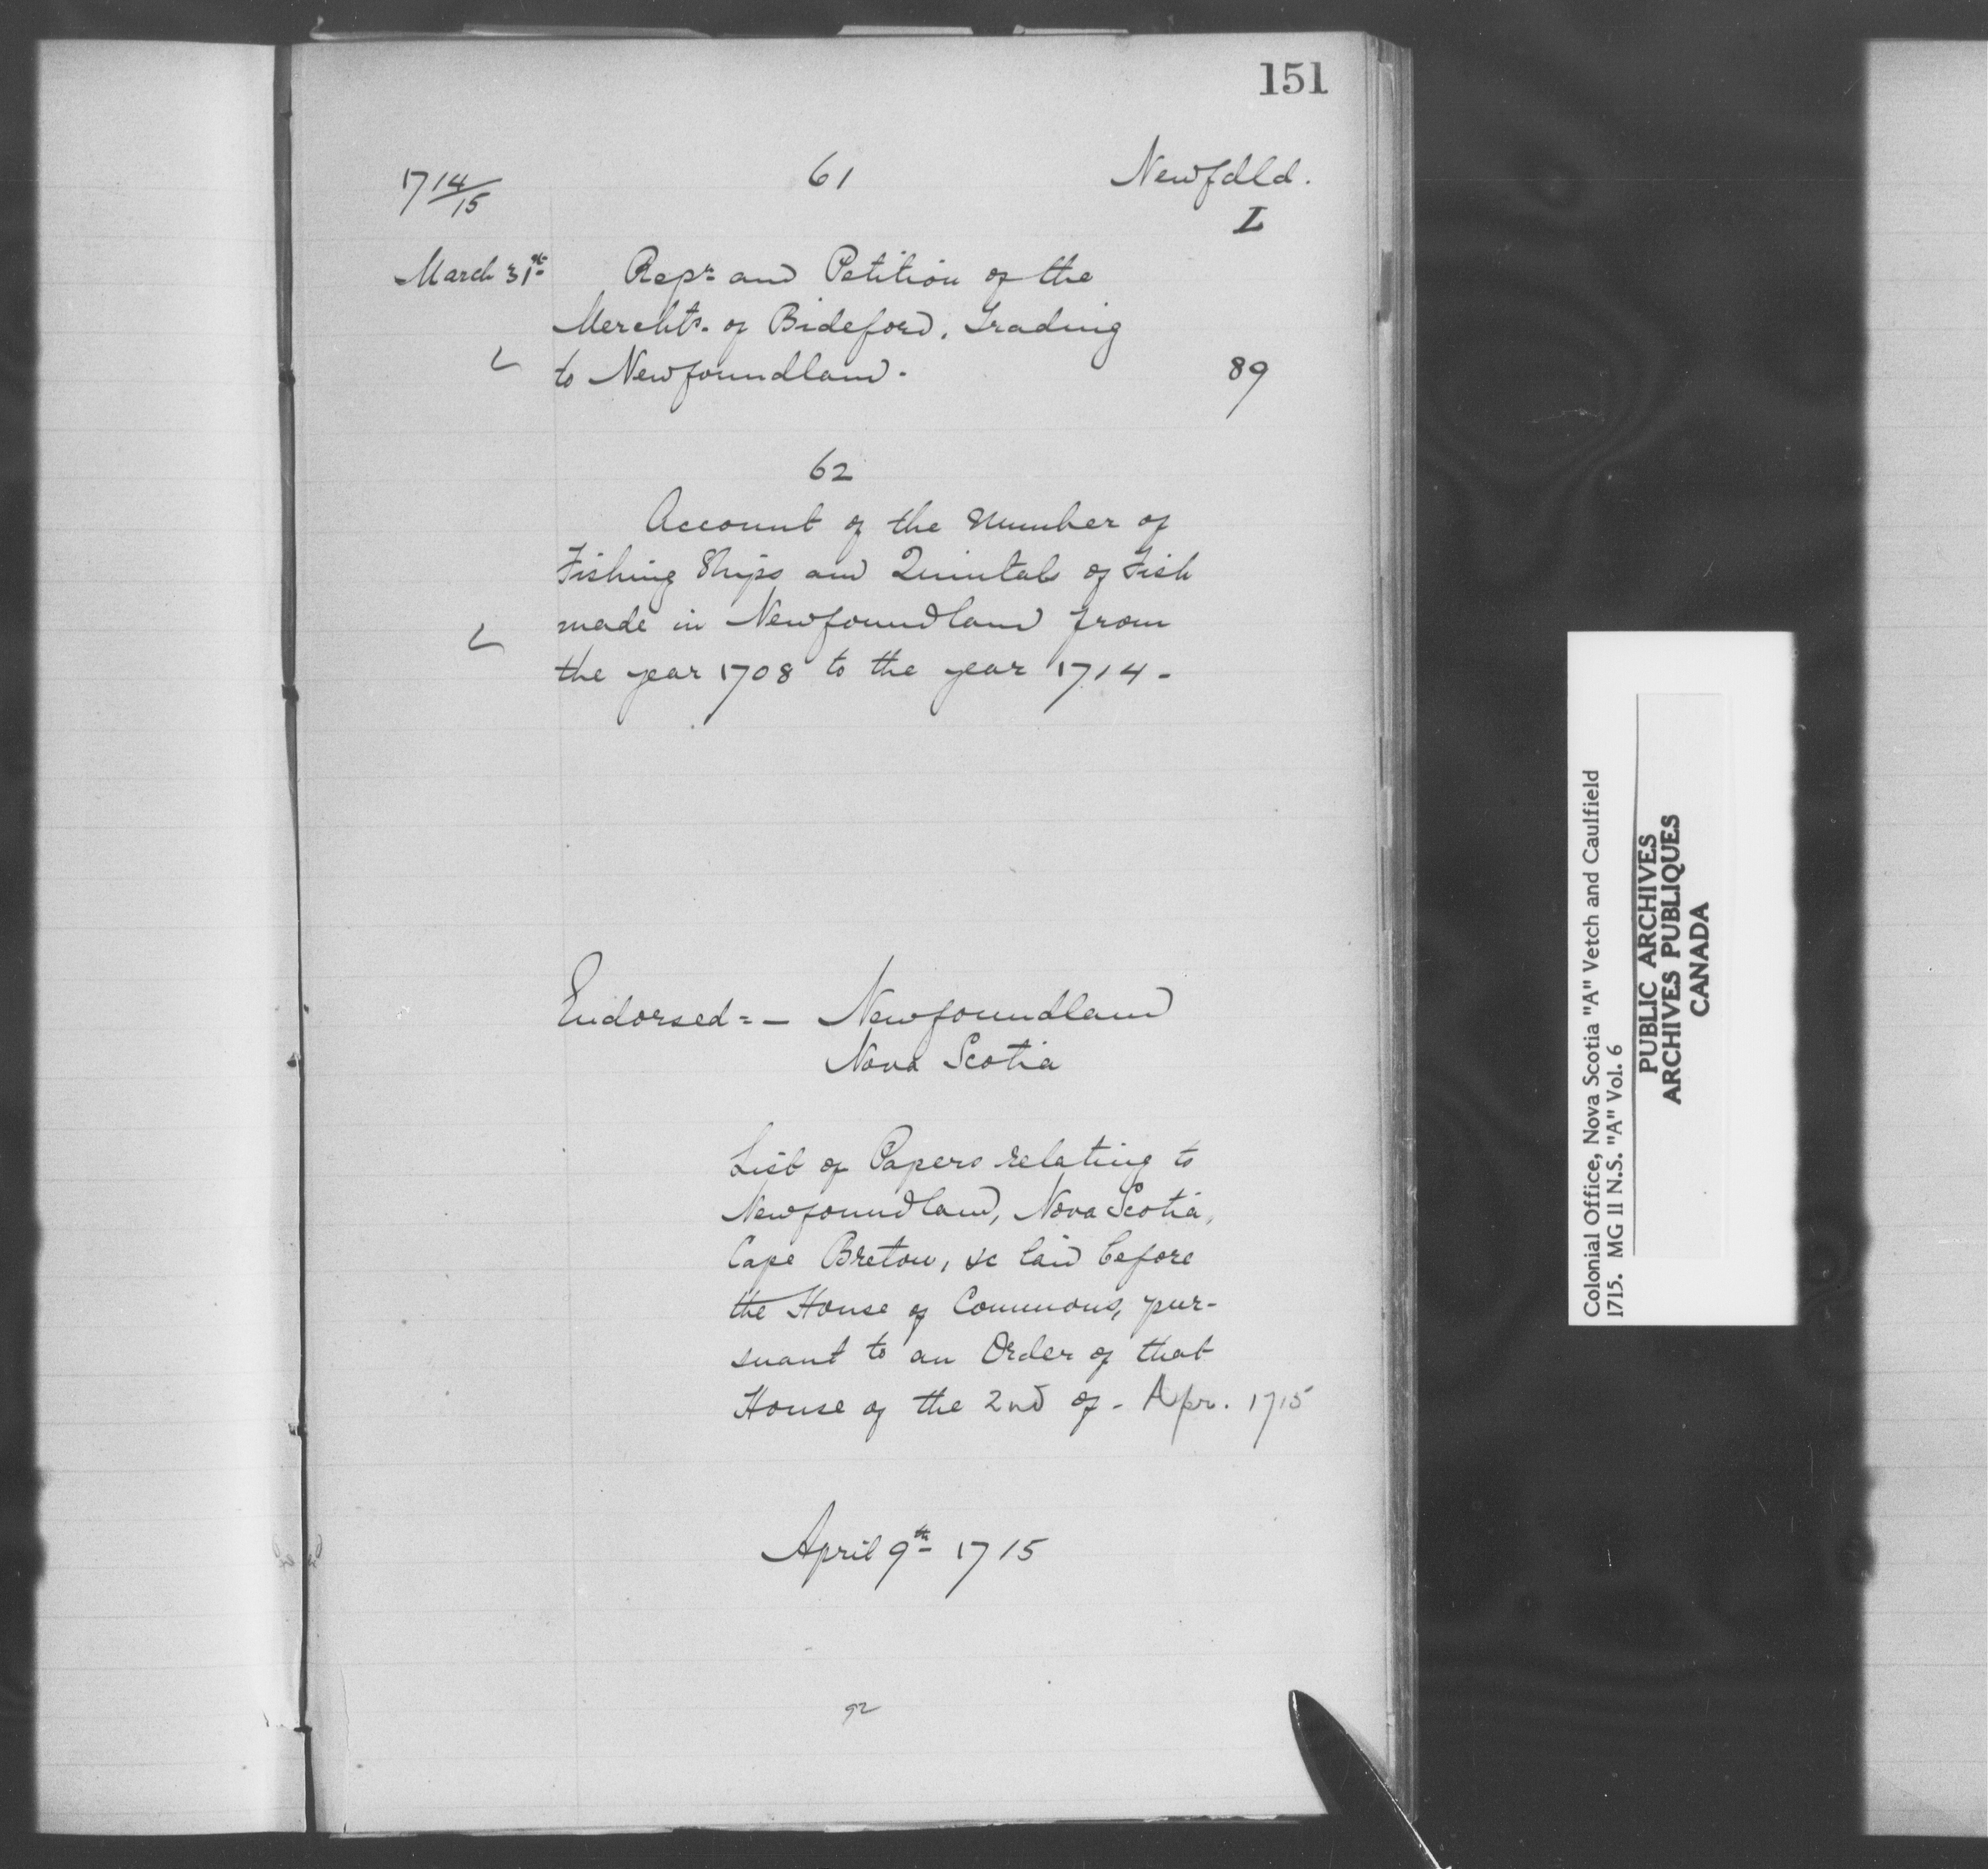 151
1714/15
61
Newfdld.
L
March 31st Repn and Petition of the
Merchts. of Bideford, Trading
to Newfoundland. 89
62
Account of the Number of
Fishing Ships and Quintals of Fish
made in Newfoundland from
the year 1708 to the year 1714-
Endorsed=- Newfoundland
Nova Scotia
List of Papers relating to
Newfoundland, Nova Scotia,
Cape Breton, &c laid before
the House of Commons, pur-
suant to an Order of that
House of the 2nd of - Apr. 1715
April 9th 1715
92
Colonial Office, Nova Scotia "A" Vetch and Caulfield
1715. MG 11 N.S. "A" Vol. 6
PUBLIC ARCHIVES
ARCHIVES PUBLIQUES
CANADA